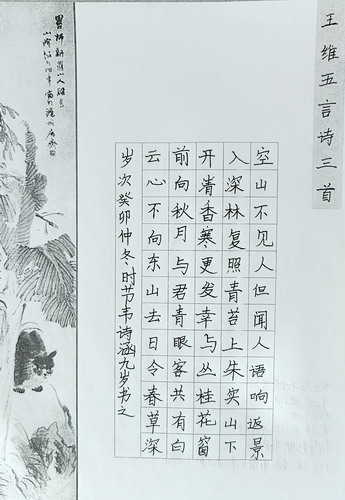 王维五言诗三首
空山不见人但闻人语响返景
入深林复照青苔上朱实山下
开清香寒更发幸与丛桂花窗
前向秋月与君青眼客共有白
云心不向东山去日令春草深
岁次癸卯仲冬时节韦诗涵九岁书之